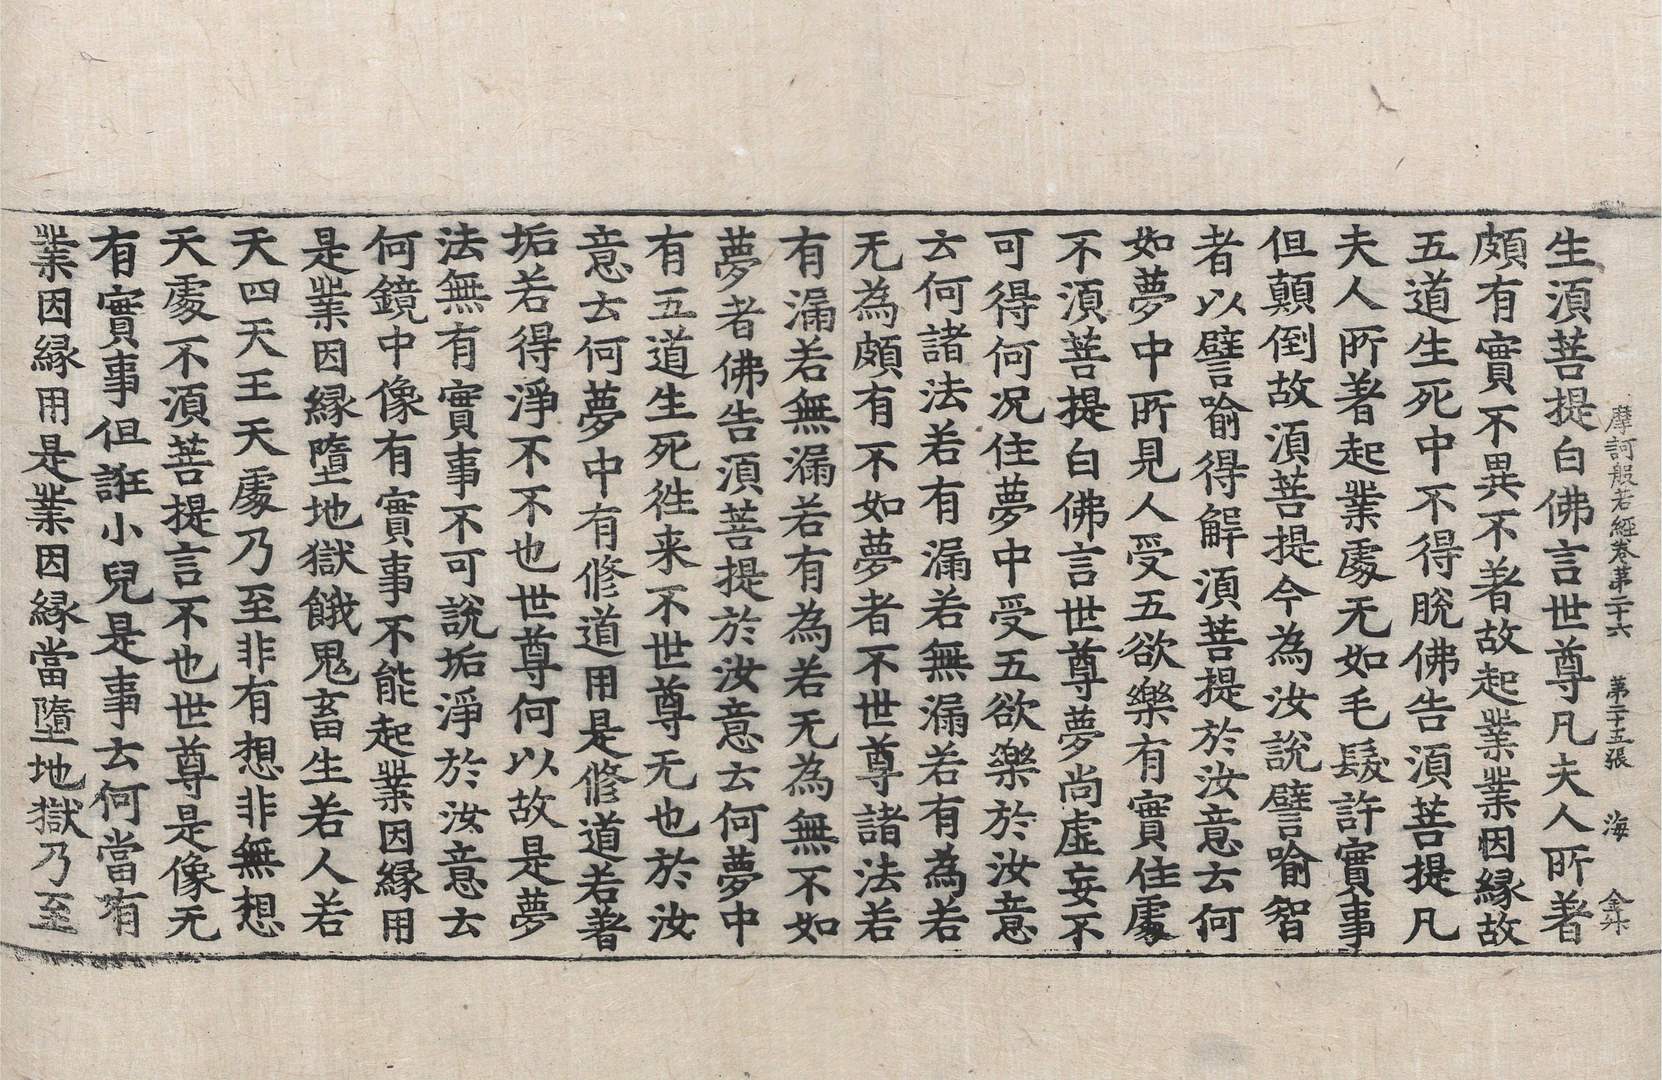 摩訶般若經卷第二十六　第二十五張　海　金升
生湏菩提白佛言世尊凡夫人所著
頗有實不異不著故起業業因縁故
五道生死中不得脫佛告湏菩提凡
夫人所著起業處无如毛髮許實事
但顛倒故湏菩提今為汝說譬喻智
者以譬喻得解湏菩提於汝意云何
如夢中所見人受五欲樂有實住處
不湏菩提白佛言世尊夢尚虛妄不
可得何况住夢中受五欲樂於汝意
云何諸法若有漏若無漏若有為若
无為頗有不如夢者不世尊諸法若
有漏若無漏若有為若无為無不如
夢者佛告湏菩提於汝意云何夢中
有五道生死徃来不世尊无也於汝
意云何夢中有修道用是修道若著
垢若得淨不不也世尊何以故是夢
法無有實事不可說垢淨於汝意云
何鏡中像有實事不能起業因縁用
是業因縁墮地獄餓鬼畜生若人若
天四天王天處乃至非有想非無想
天處不湏菩提言不也世尊是像无
有實事但誑小兒是事云何當有
業因縁用是業因縁當墮地獄乃至